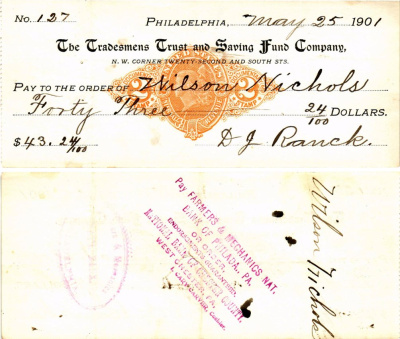 No. 127 Philadelphia, May 25 1901
The Tradesmens Trust and Saving Fund Company,
N. W. CORNER TWENTY-SECOND AND SOUTH STS.
PAY TO THE ORDER OF Wilson Nichols
Forty Three 24/100 DOLLARS.
$43.24/100 D J Ranck.
Pay FARMERS & MECHANICS NAT.
BANK OF PHILADA, PA.
OR ORDER
ENDORSEMENTS GUARANTEED
NATIONAL BANK OF CHESTER COUNTY,
WEST CHESTER, PA.
Cashier.
Wilson Nichols